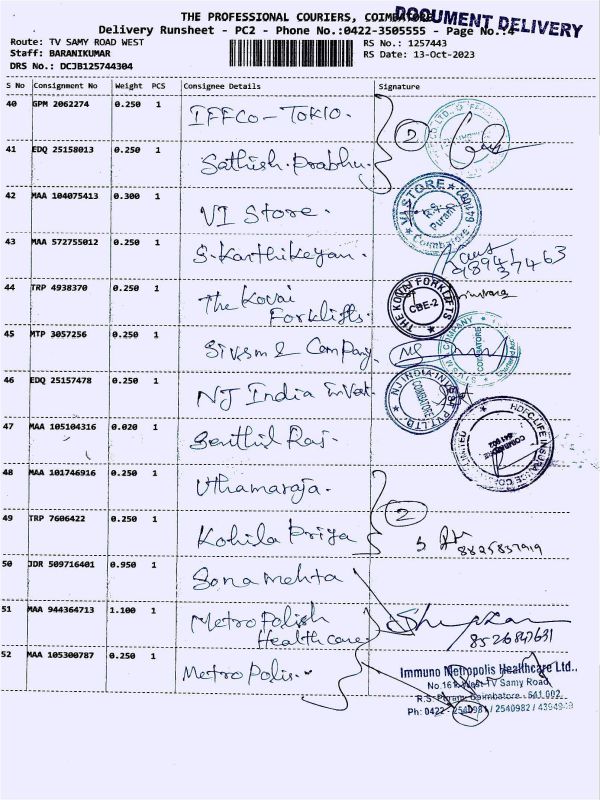 THE PROFESSIONAL COURIERS, COIMBATORE
DOCUMENT DELIVERY
Delivery Runsheet - PC2 - Phone No.:0422-3505555 - Page No.:4
Route: TV SAMY ROAD WEST
RS No.: 1257443
Staff: BARANIKUMAR
RS Date: 13-Oct-2023
DRS No.: DCJB125744304
S No Consignment No Weight PCS Consignee Details Signature
40 GPM 2062274 0.250 1 IFFCO - TOKIO.
2
41 EDQ 25158013 0.250 1 Sathish. Prabhu.
42 MAA 104075413 0.300 1 VI Store.
VI STORE R.S. Puram Coimbatore
43 MAA 572755012 0.250 1 S. Karthikeyan.
98941
37463
44 TRP 4938370 0.250 1 The Kovai
Forklifts.
THE KOVAI FORKLIFTS CBE-2
45 MTP 3057256 0.250 1 Sivsm & Company.
SIVSM COMPANY COIMBATORE
46 EDQ 25157478 0.250 1 NJ India Invest.
NJ INDIA INVEST PVT LTD COIMBATORE
47 MAA 105104316 0.020 1 Senthil Raj.
HDFC LIFE INSURANCE COMPANY LIMITED COIMBATORE 641 002
48 MAA 101746916 0.250 1 Uthamaraja.
2
49 TRP 7606422 0.250 1 Kohila Priya
8825837919
50 JDR 509716401 0.950 1 Sona mehta
51 MAA 944364713 1.100 1 Metro Polish
Health care
8526847631
52 MAA 105300787 0.250 1 Metro Polis.
Immuno Metropolis Healthcare Ltd.,
West TV Samy Road,
R.S. Puram, Coimbatore - 641 002.
Ph: 0422 - 2540981 / 2540982 /